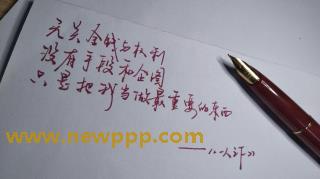 无关金钱与权利
没有手段和企图
只是把我当做最重要的东西
www.newppp.com